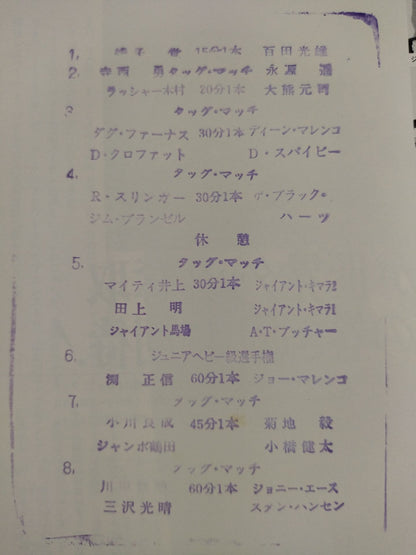 1. 15分1本 百田光雄
2. 勇 タッグ・マッチ 永源 遙
ラッシャー木村 20分1本 大熊元司
3 タッグ・マッチ
ダグ・ファーナス 30分1本 ディーン・マレンコ
D・クロファット D・スパイビー
4. タッグ・マッチ
R・スリンガー 30分1本 ザ・ブラック・
ジム・ブランゼル ハーツ
休憩
5. タッグ・マッチ
マイティ井上 30分1本 ジャイアント・キマラ2
田上 明 ジャイアント・キマラ1
ジャイアント馬場 A・T・ブッチャー
6. ジュニアヘビー級選手権
渕 正信 60分1本 ジョー・マレンコ
7 タッグ・マッチ
小川良成 45分1本 菊地 毅
ジャンボ鶴田 小橋健太
8. タッグ・マッチ
川 60分1本 ジョニー・エース
三沢光晴 スタン・ハンセン